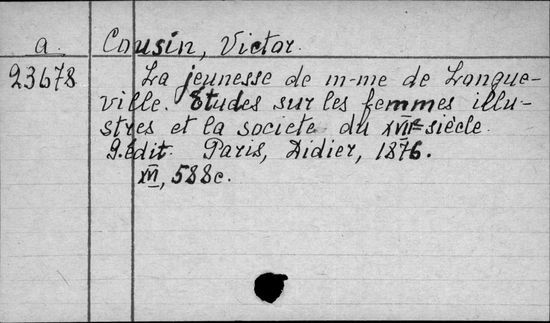 a. Cousin, Victor.
23678 La jeunesse de m-me de Longue-
ville. Études sur les femmes illu-
stres et la societe du XVIIe siècle.
9.édit. Paris, Didier, 1876.
XVI, 588c.